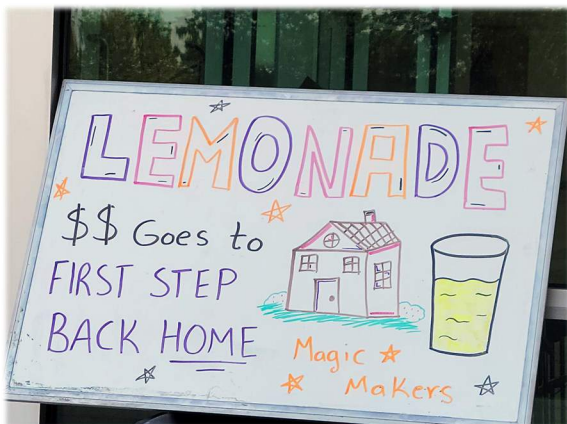 LEMONADE
$$ Goes to
FIRST STEP
BACK HOME
Magic
Makers